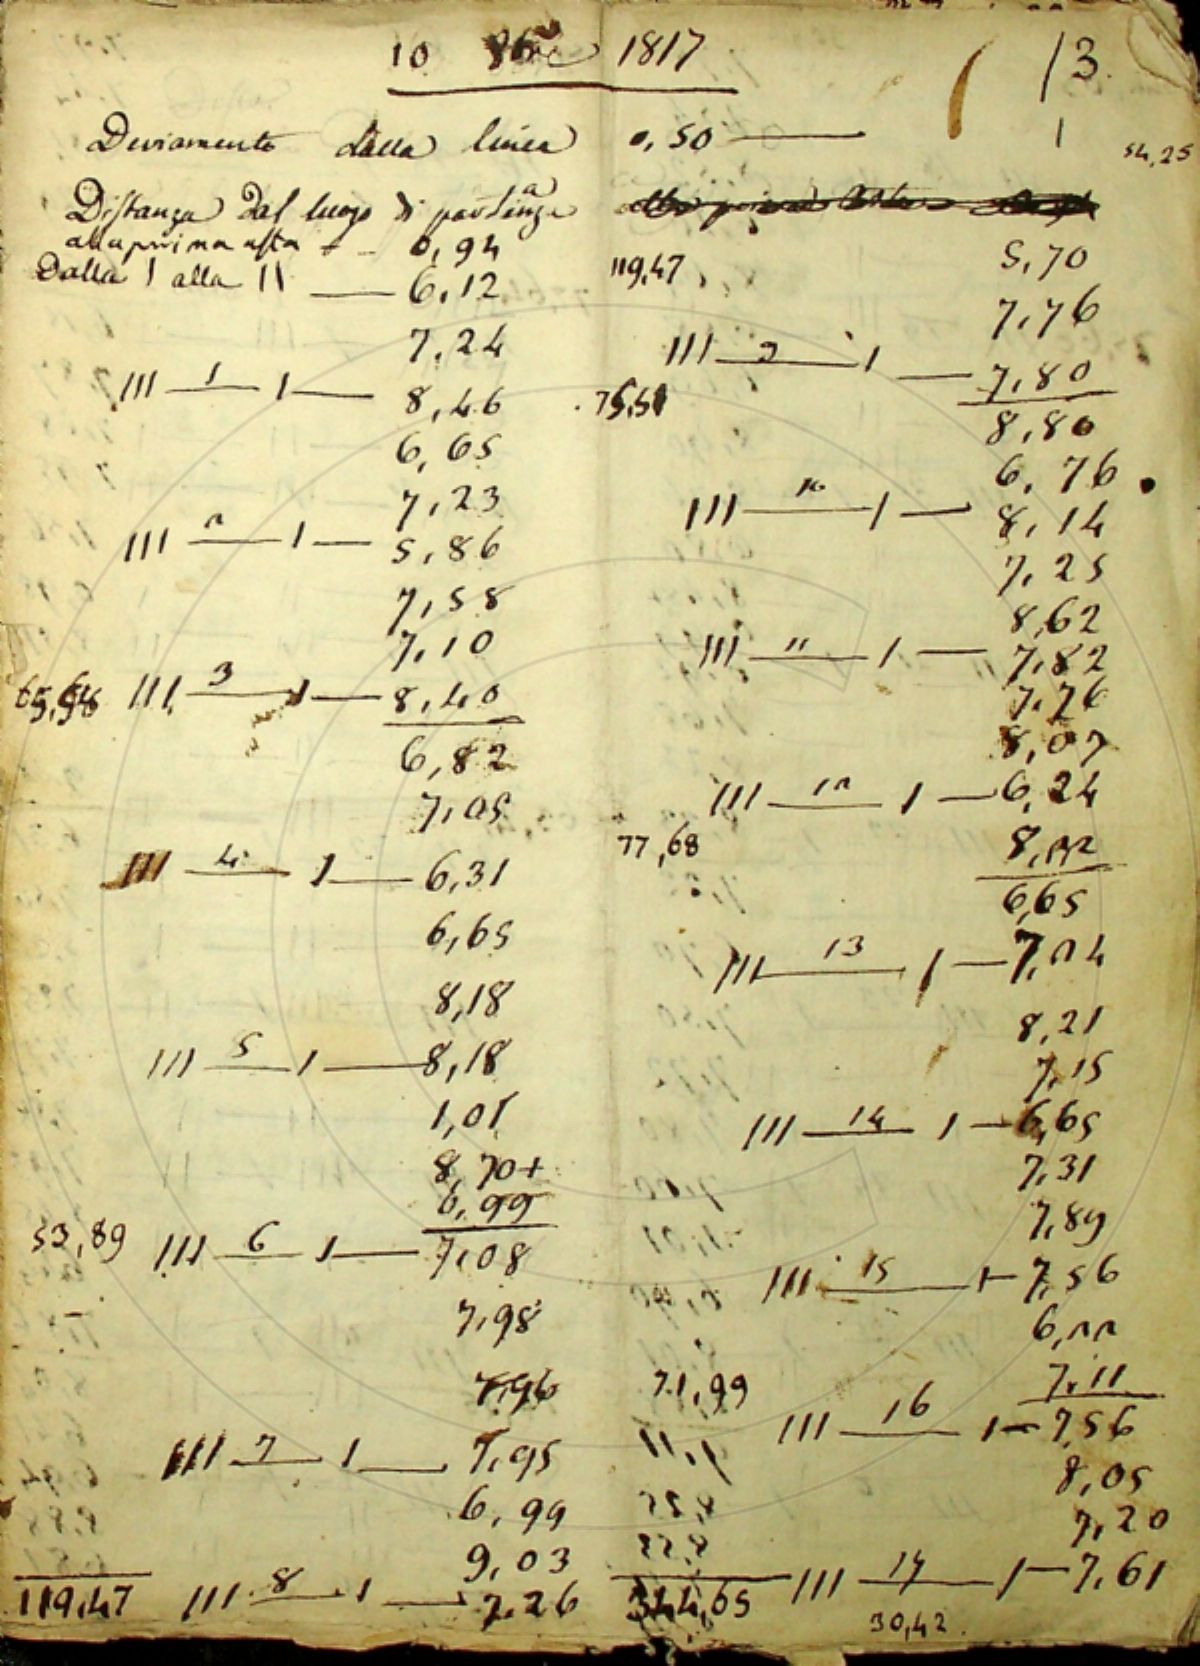 10 8bre 1817
13.
Deviamento dalla linea 0,50 — 1
54,25
Distanza dal luogo di partenza
alla prima asta - - 0,94
Dalla I alla II — 6,12
7,24
III — 1 — I — 8,46
6,65
7,23
III — 2 — I — 5,86
7,58
7,10
III — 3 — I — 8,40
6,82
7,05
III — 4 — I — 6,31
6,65
8,18
III — 5 — I — 8,18
1,01
8,70+
6,99
53,89 III — 6 — I — 7,08
7,98
7,96
III — 7 — I — 7,95
6,99
9,03
119,47 III — 8 — I — 7,26
119,47
5,70
7,76
III — 9 — I — 7,80
75,51
8,80
6,76
III — 10 — I — 8,14
7,25
8,62
III — 11 — I — 7,82
7,76
8,07
III — 12 — I — 6,24
77,68 8,22
6,65
III — 13 — I — 7,24
8,21
7,15
III — 14 — I — 6,65
7,31
7,89
III — 15 — I — 7,56
6,22
71,99 7,11
III — 16 — I — 7,56
8,05
7,20
344,65 III — 17 — I — 7,61
30,42.